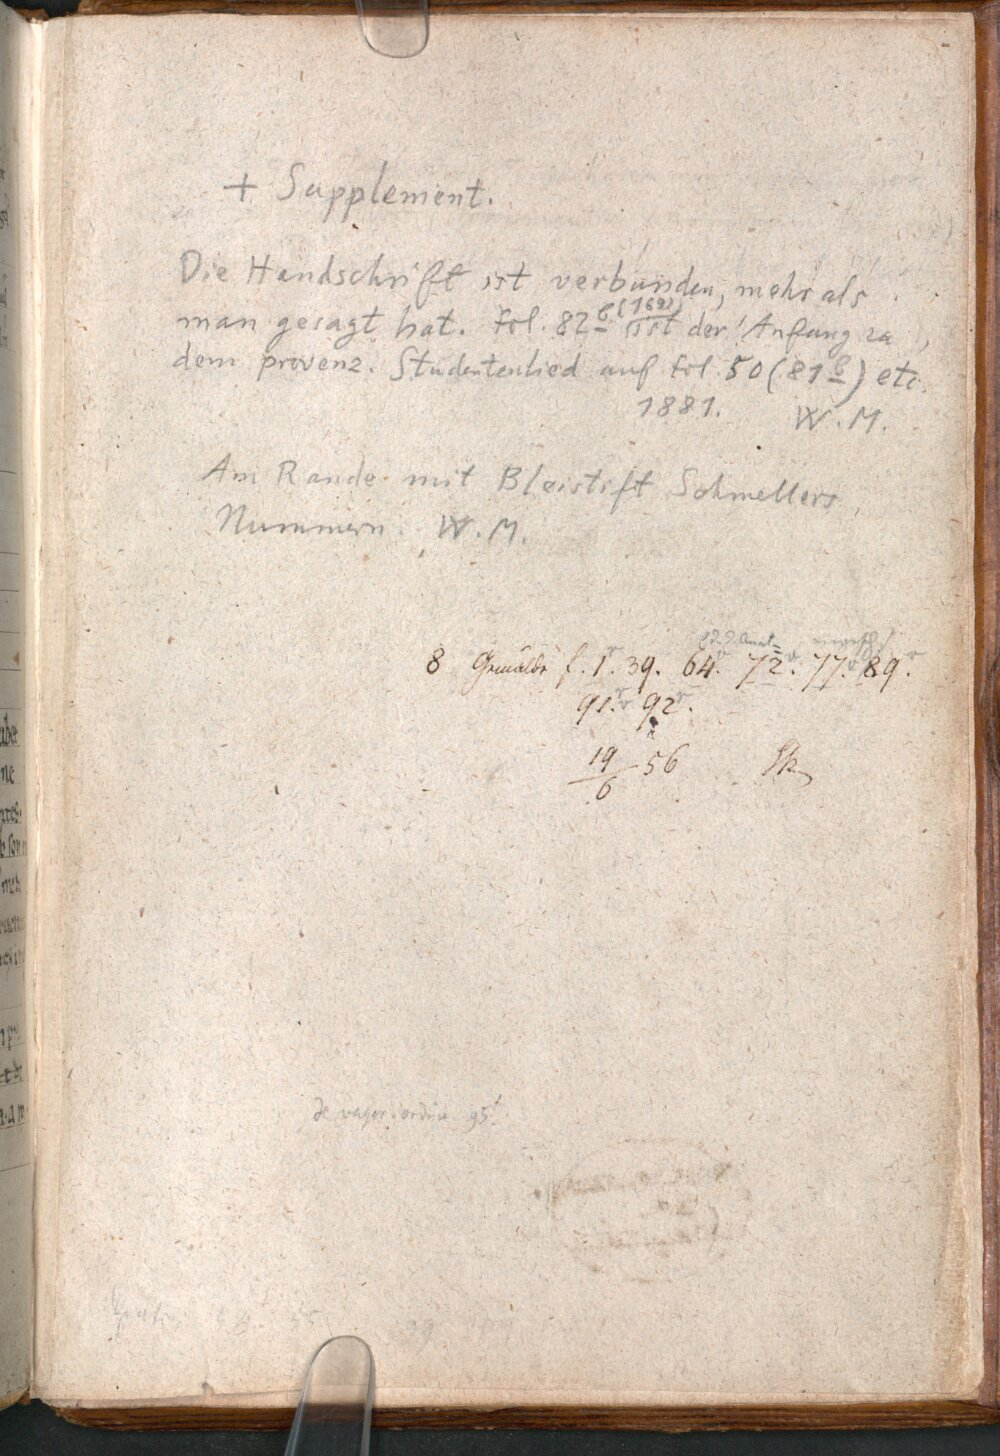 + Supplement.
Die Handschrift ist verbunden, mehr als
man gesagt hat. Fol. 82 ist der Anfang zu
dem provenz. Studentenlied auf Fol 50 (81b) etc.
1881. W. M.
Am Rande mit Bleistift Schmellers
Nummern. W. M.
8 Gemälde f. 1. 39. 64. 72. 77. 89.
91. 92.
19/6 56
de vagor. ordine 95